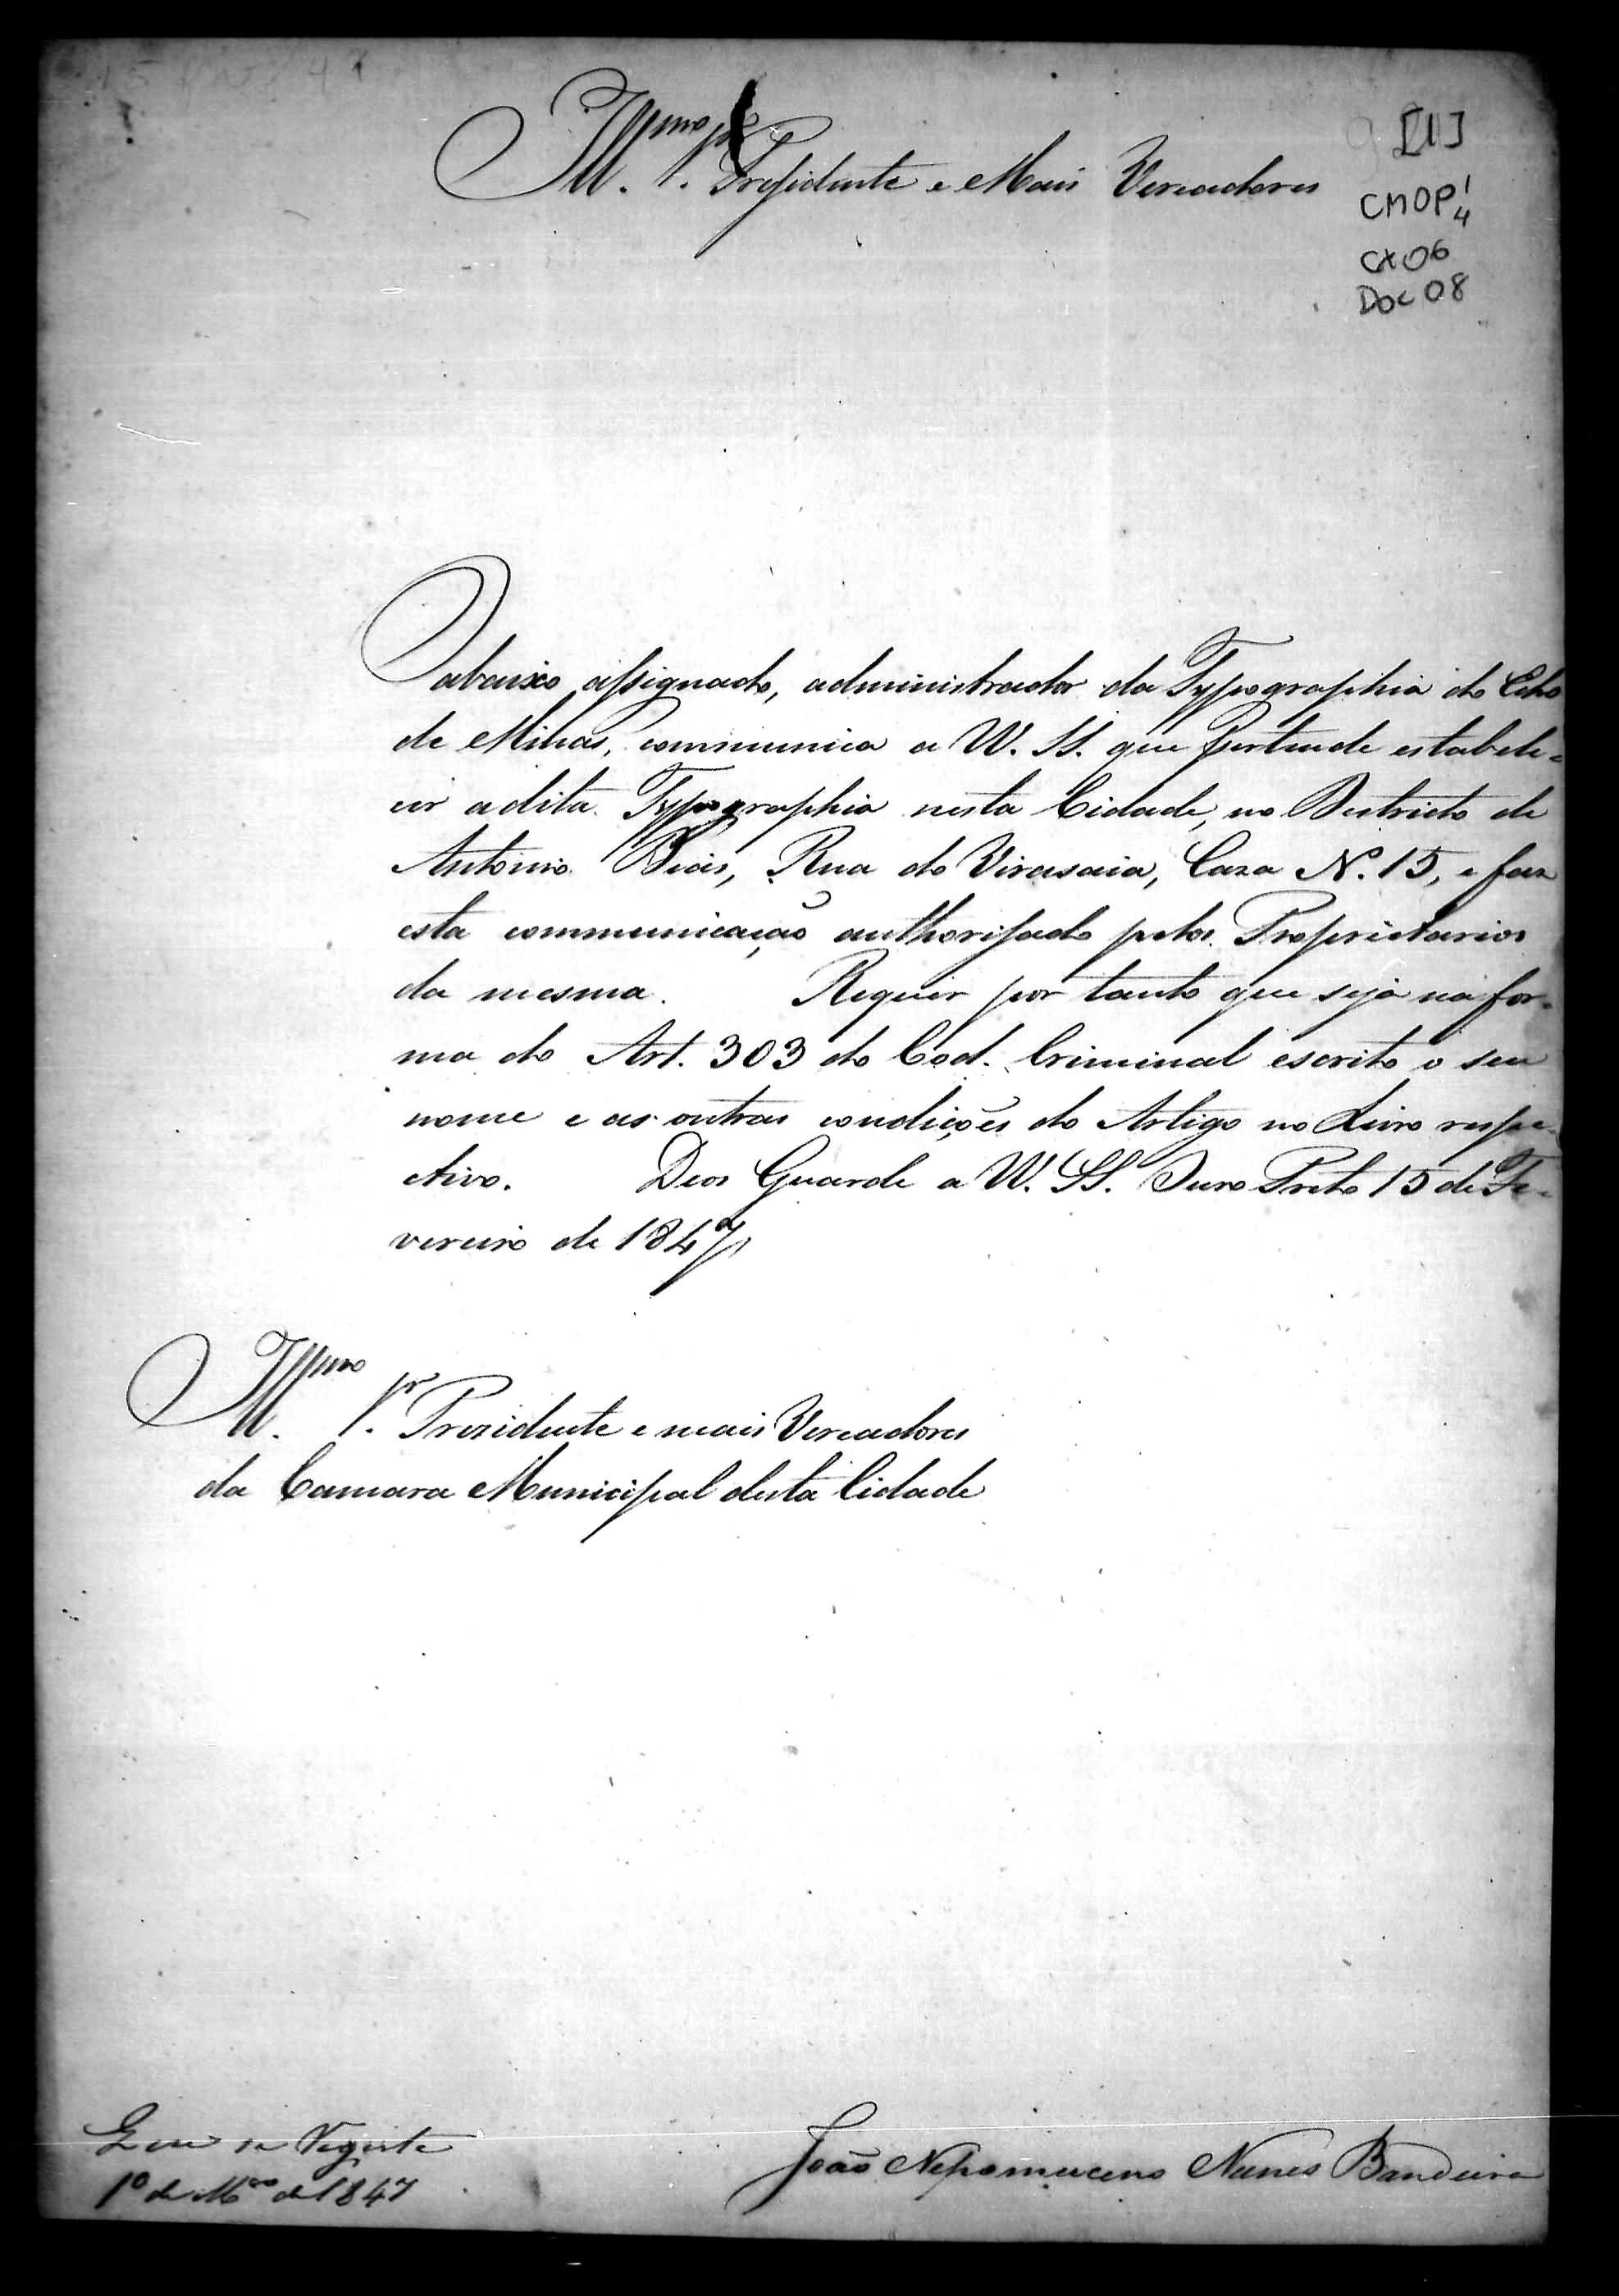 15 Fevº / 47
Illmo Sr. Presidente e Mais Vereadores
[1]
CMOP 1/4
CX 06
Doc 08
O abaixo assignado, administrador da Typographia do Echo
de Minas, communica a W. SS. que pertende estabele-
cer a dita Typographia nesta Cidade, no Destricto de
Antonio Dias, Rua do Virasaia, Caza N. 15, e faz
esta communicação authorisado pelos Proprietarios
da mesma. Requer por tanto que seja na for-
ma do Art. 303 do Cod. Criminal escrito o seu
nome e as outras condições do Artigo no Livro respe-
ctivo. Deos Guarde a W. SS. Ouro Preto 15 de Fe-
vereiro de 1847
Illmo Sr. Prezidente e mais Vereadores
da Camara Municipal desta Cidade
Que se Registe
1º de Mço de 1847
João Nepomuceno Nunes Bandeira